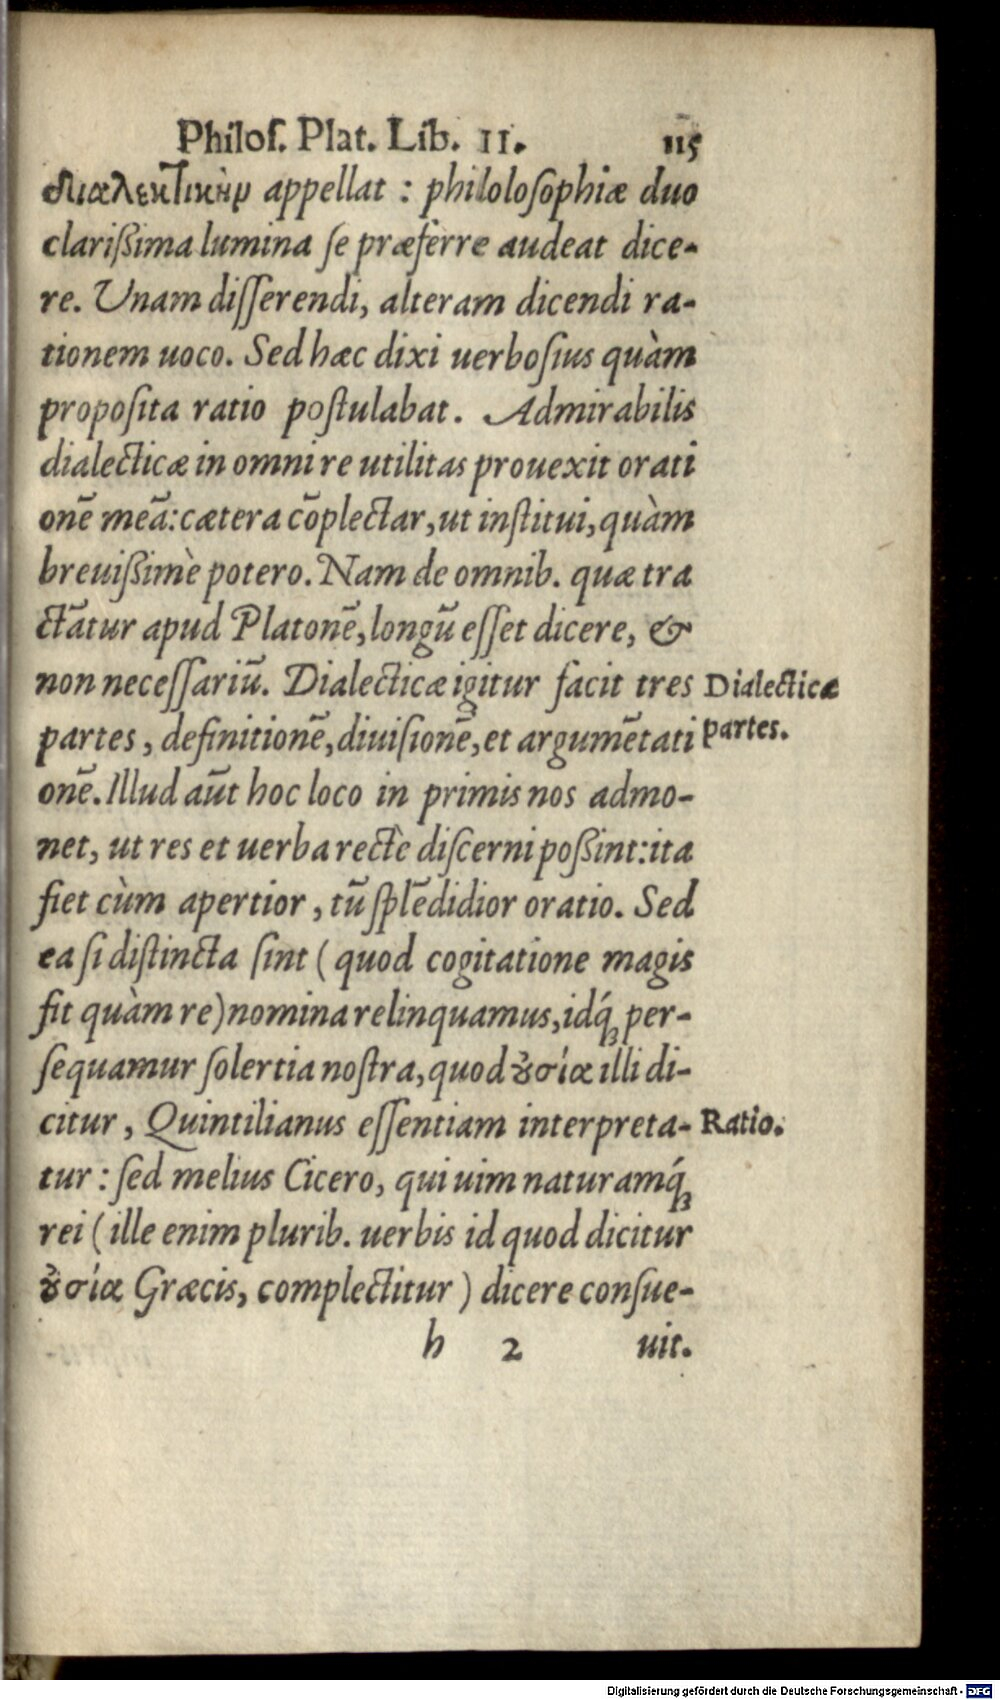 Philoſ. Plat. Lib. II. 115
διαλεκτικὴν appellat : philoloſophiæ duo
clarißima lumina ſe præferre audeat dice-
re. Unam diſſerendi, alteram dicendi ra-
tionem uoco. Sed hæc dixi uerboſius quàm
propoſita ratio poſtulabat. Admirabilis
dialecticæ in omni re utilitas prouexit orati
onē meā: cætera cōplectar, ut inſtitui, quàm
breuißimè potero. Nam de omnib. quæ tra
ctātur apud Platonē, longū eſſet dicere, &
non neceſſariū. Dialecticæ igitur facit tres
Dialecticæ
partes, definitionē, diuiſionē, et argumētati
partes.
onē. Illud aūt hoc loco in primis nos admo-
net, ut res et uerba rectè diſcerni poßint: ita
fiet cùm apertior, tū ſplēdidior oratio. Sed
ea ſi diſtincta ſint ( quod cogitatione magis
fit quàm re) nomina relinquamus, idq́ꝫ per-
ſequamur ſolertia noſtra, quod ȣ̓σία illi di-
citur, Quintilianus eſſentiam interpreta-
Ratio.
tur : ſed melius Cicero, qui uim naturamq́ꝫ
rei ( ille enim plurib. uerbis id quod dicitur
ȣ̓σία Græcis, complectitur ) dicere conſue-
h 2 uit.
Digitalisierung gefördert durch die Deutsche Forschungsgemeinschaft - DFG